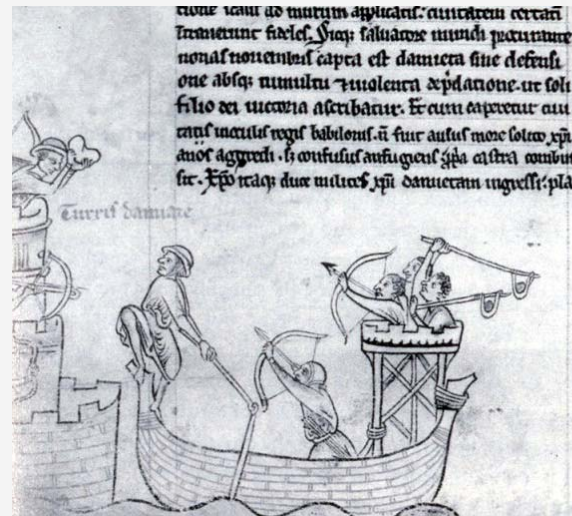 cione scalis ad murum applicatis: ciuitatem certati
Intrauerunt fideles. Sicq; saluatore mundi procurante
nonas nouembris capta est damieta sine defensi
one absq; tumultu ⁊ uiolenta depdatione. ut soli
filio dei uictoria ascribatur. Et cum caperetur ciui
tatis in oculis regis babilonis. ñ fuit ausus more solito xp̃i
anos aggredi. s; confusus aufugiens ꝓpria castra combus
sit. Xp̃o itaq; duce milites xp̃i damietam ingressi:
Turris damiate